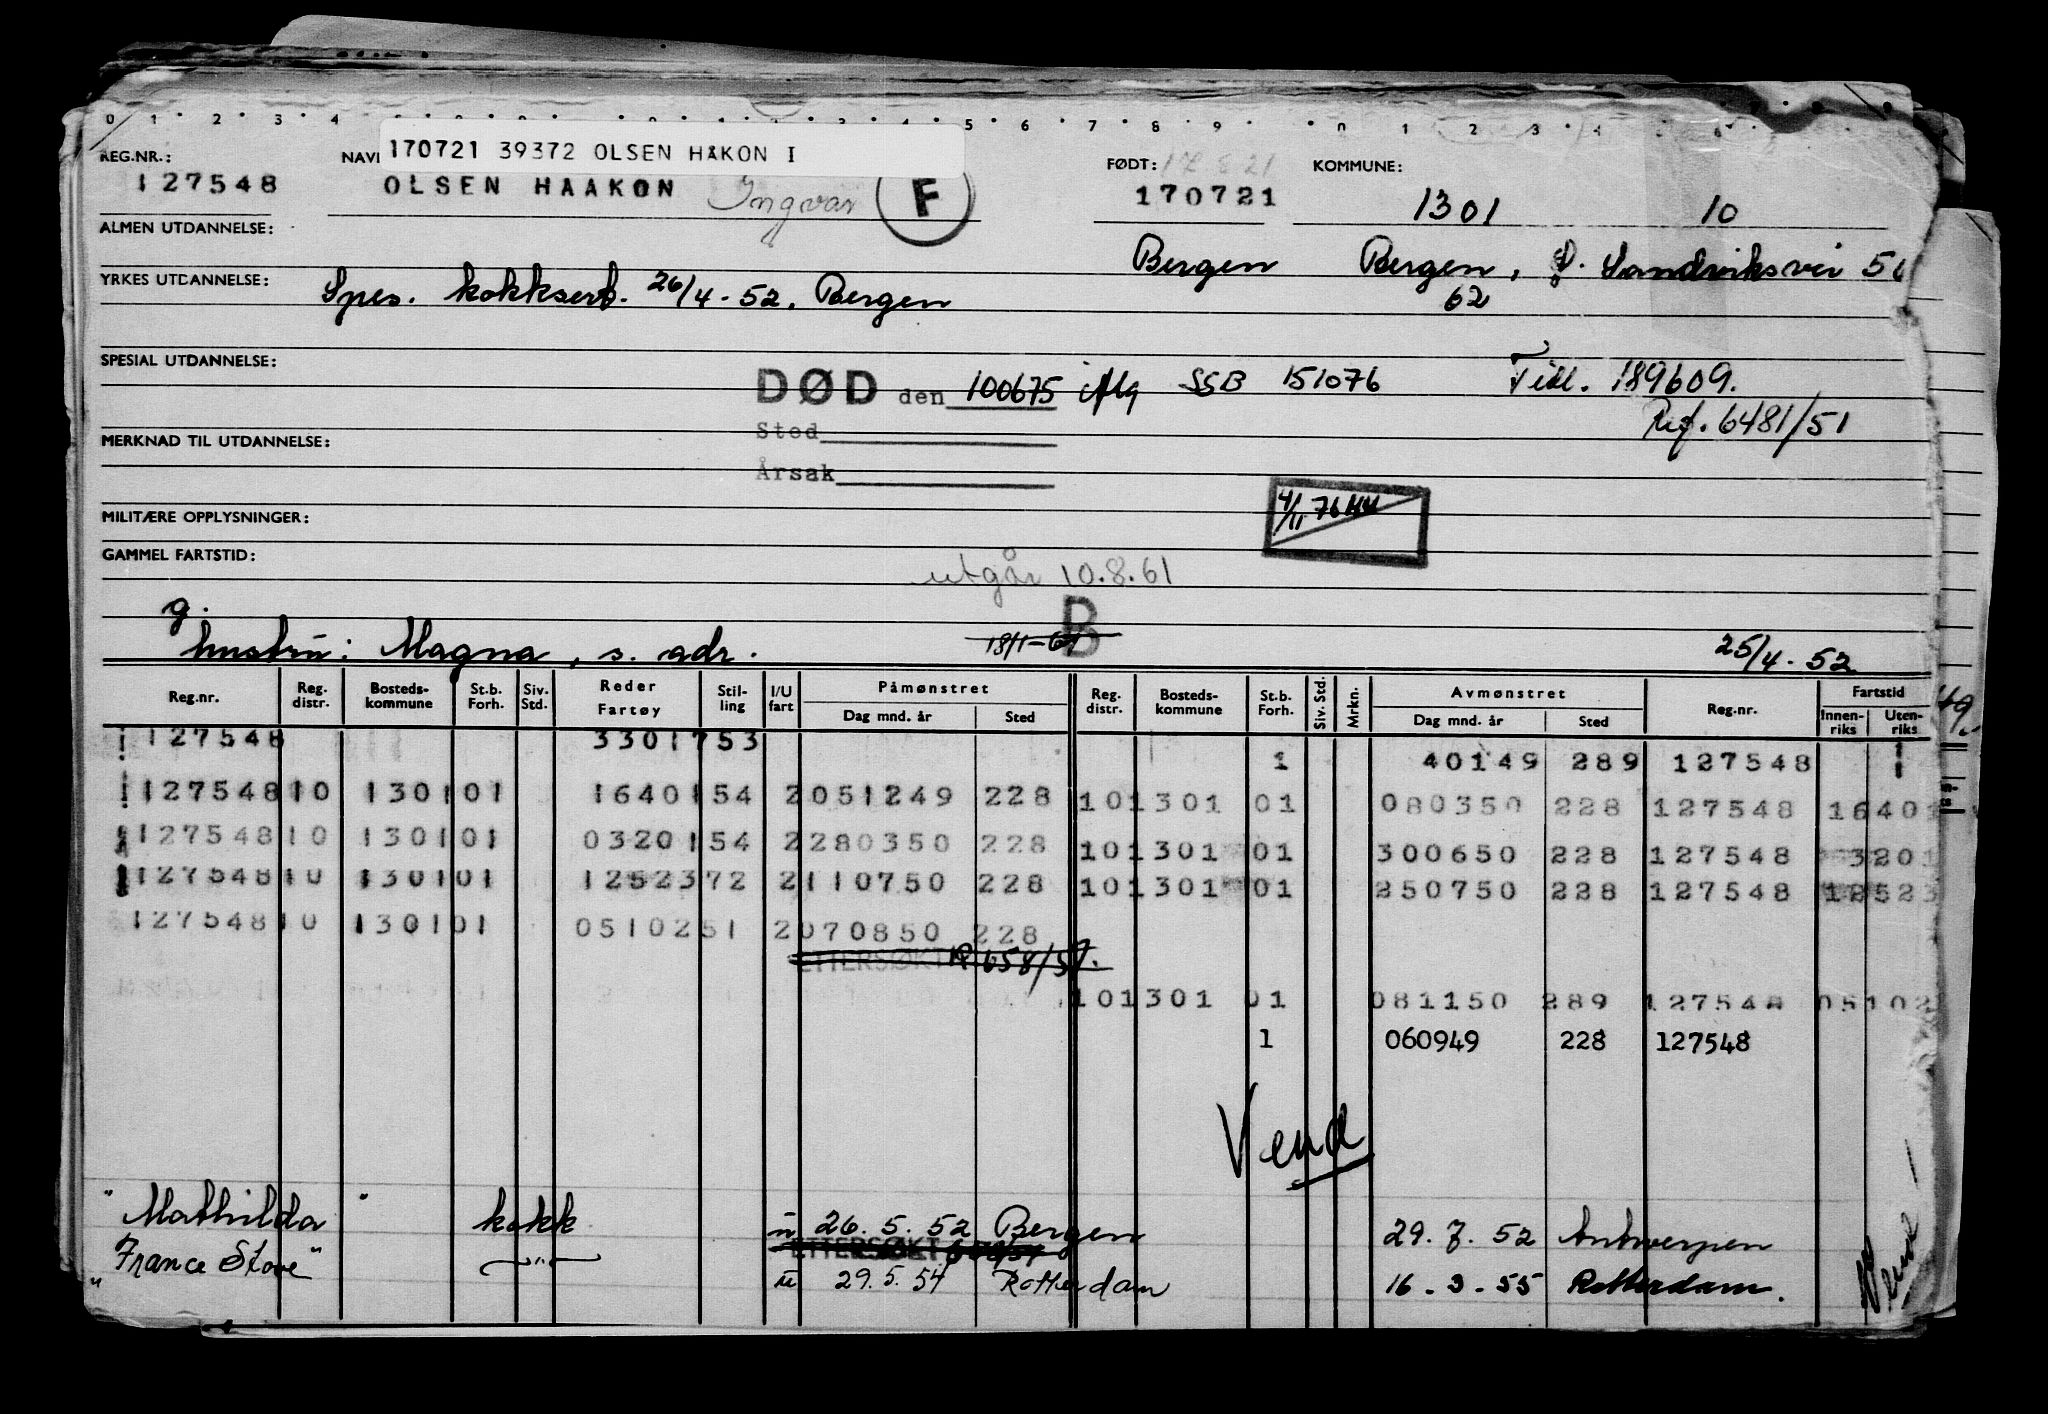 0 1 2 3 4 5 6 7 8 9 0 1 2 3 4
170721 39372 OLSEN HÅKON I
REG.NR.: NAVN FØDT: 17.8.21 KOMMUNE:
127548 OLSEN HAAKON Ingvar F 170721 1301 10
ALMEN UTDANNELSE:
Bergen Bergen, Sandviksvei 56
YRKES UTDANNELSE: Spes. kokksert. 26/4-52. Bergen 62
SPESIAL UTDANNELSE: Tidl. 189609.
DØD den 100675 SSB 151076
Ref. 6481/51
Sted
MERKNAD TIL UTDANNELSE:
Årsak
4/11 76
MILITÆRE OPPLYSNINGER:
GAMMEL FARTSTID:
utgår 10.8.61
g. B
hustru: Magna, s. adr. 18/1-61 25/4-52
Reg.nr. Reg. distr. Bosteds- kommune St.b. Forh. Siv. Std. Reder Fartøy Stil- ling I/U fart Påmønstret Dag mnd. år Sted Reg. distr. Bosteds- kommune St.b. Forh. Siv. Std. Mrkn. Avmønstret Dag mnd. år Sted Reg.nr. Fartstid Innen- riks Uten- riks
127548 3301753 1 40149 289 127548
127548 10 1301 01 1640154 2 051249 228 10 1301 01 080350 228 127548 16401
127548 10 1301 01 0320154 2 280350 228 10 1301 01 300650 228 127548 3201
127548 10 1301 01 1252372 2 110750 228 10 1301 01 250750 228 127548 12523
127548 10 1301 01 0510251 2 070850 228
ETTERSØKT 658/57.
10 1301 01 081150 289 127548 05102
1 060949 228 127548
Vend
"Mathilda" kokk u 26.5.52 Bergen 29.7.52 Antwerpen
ETTERSØKT
"France Stove" —"— u 29.5.54 Rotterdam 16-3-55 Rotterdam.
Vend